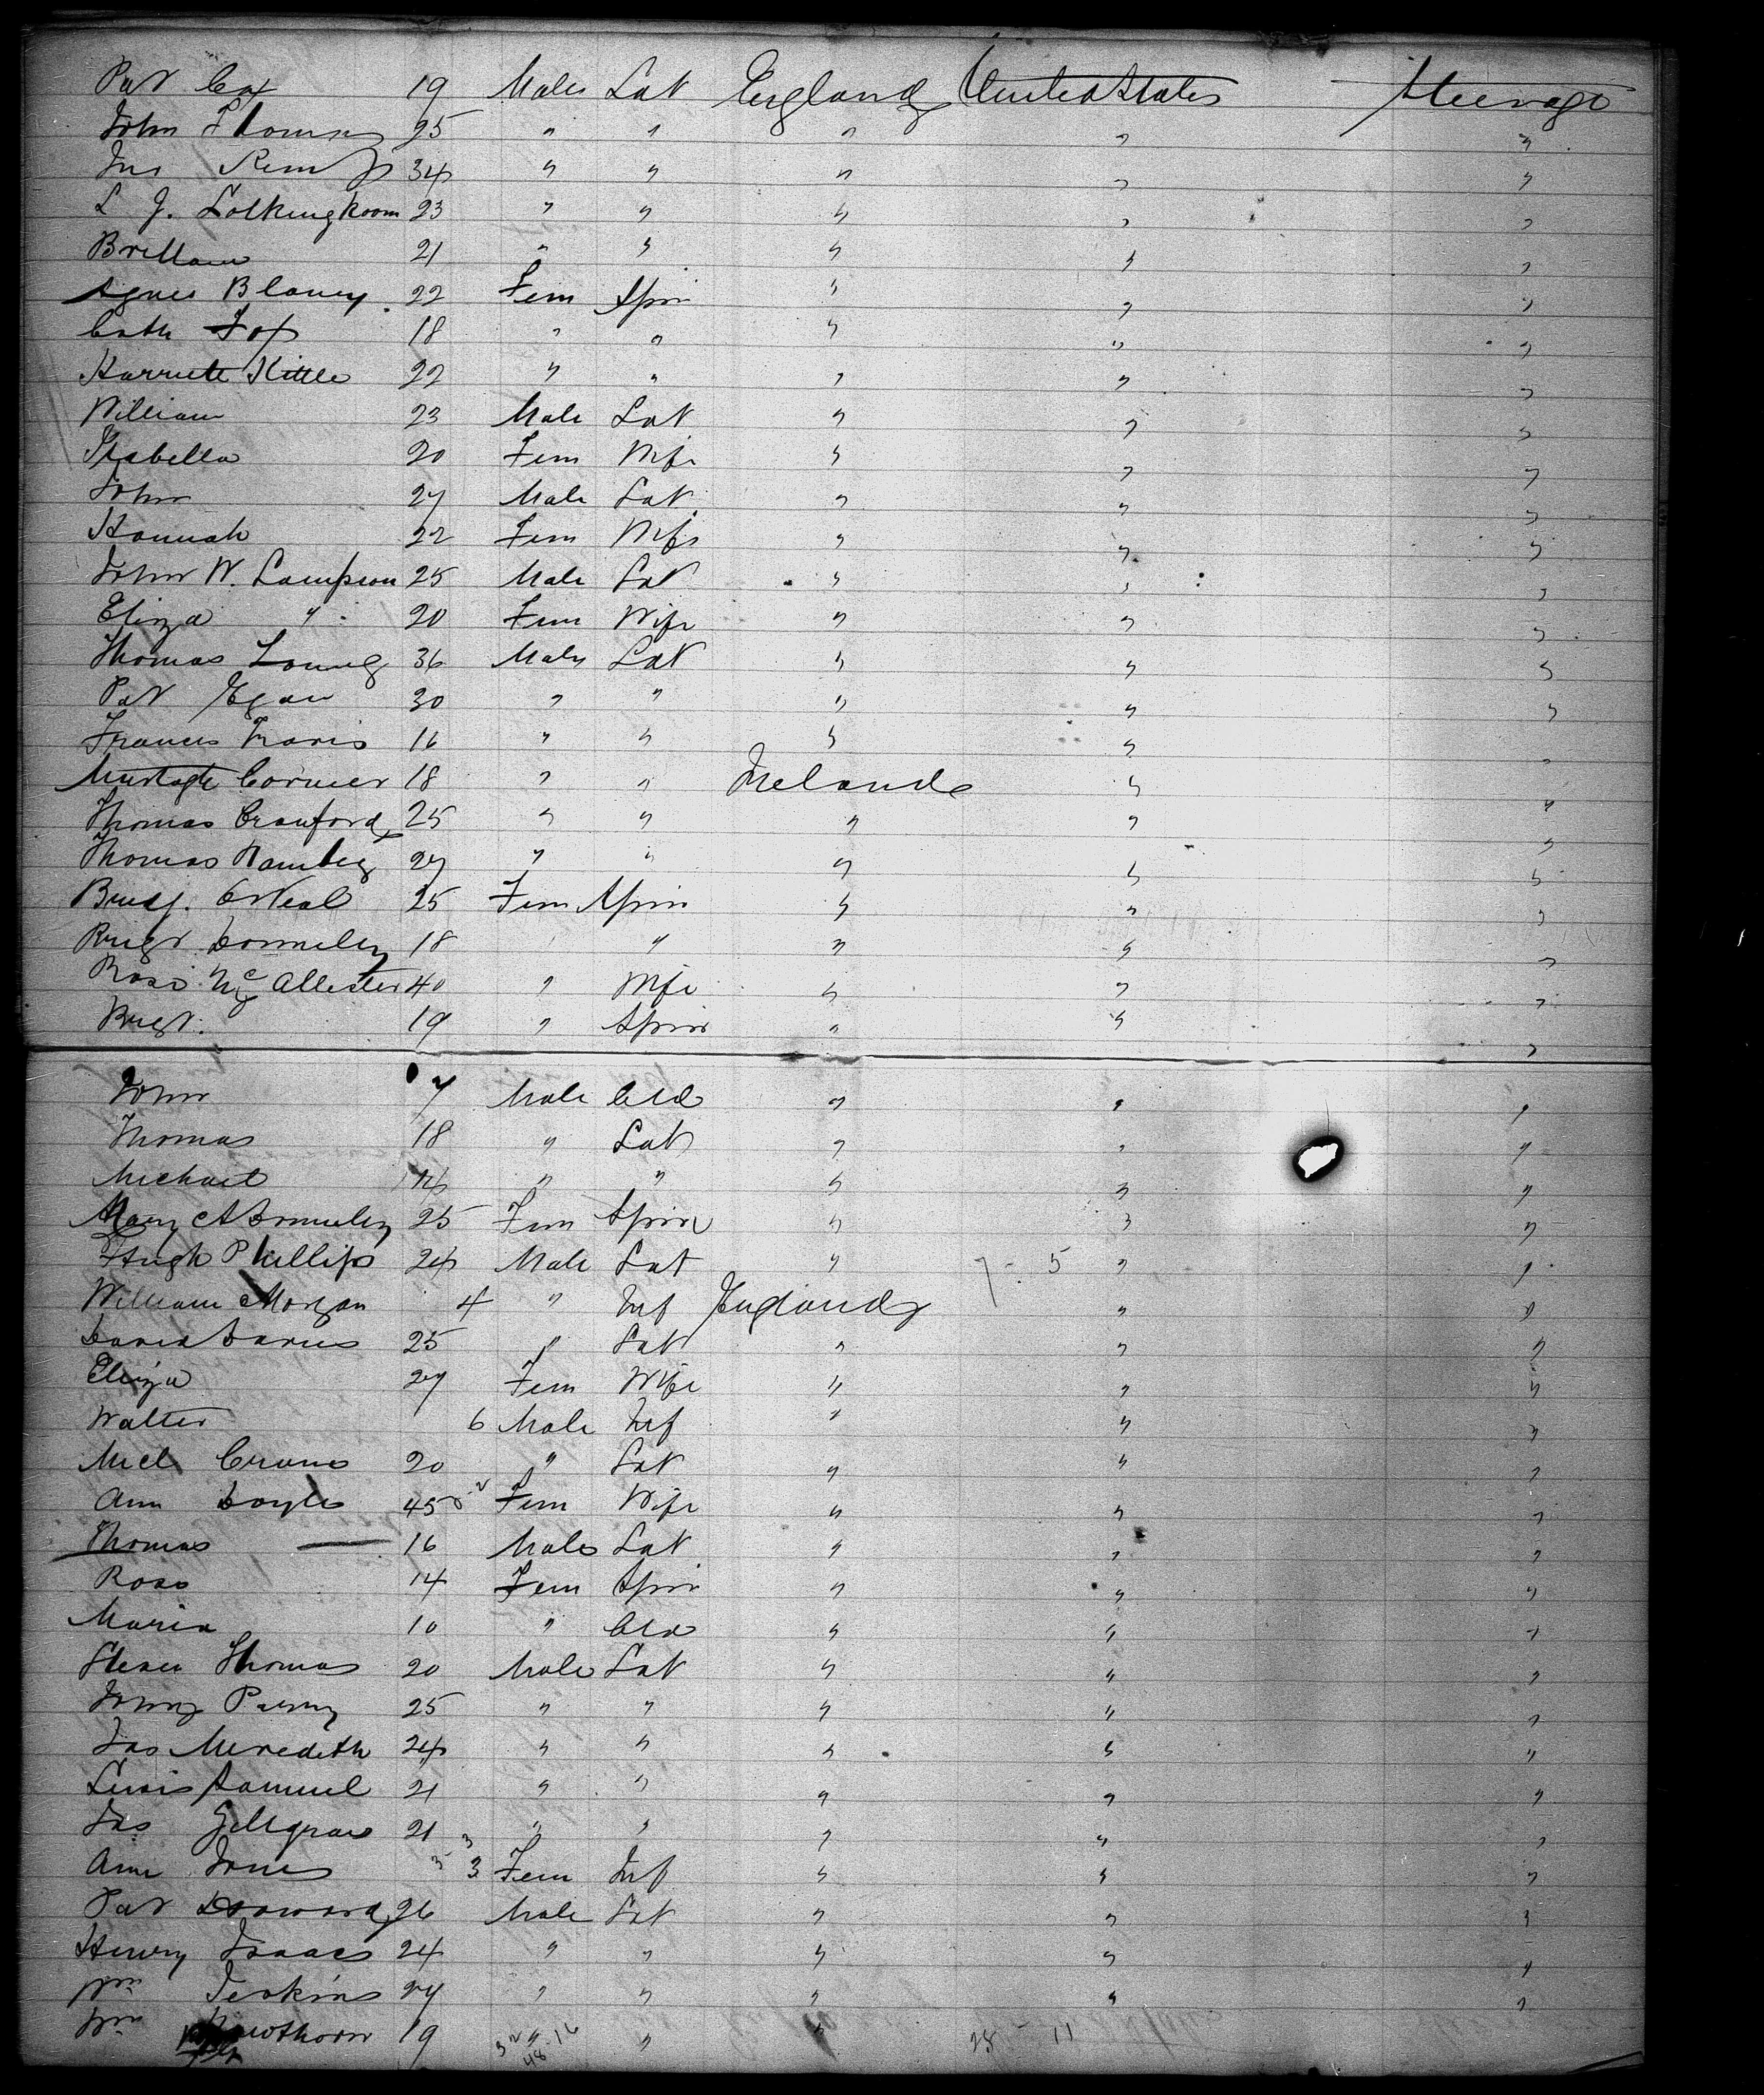 Pat Cox 19 Male Lab England United States Steerage
John Thomas 25 " " " " "
Jno Kemp 34 " " " " "
L J. 23 " " " " "
21 " " " " "
Agnes Blaney 22 Fem Spin " " "
Cath Fox 18 " " " " "
Harriett Kittle 22 " " " " "
William 23 Male Lab " " "
Isabella 20 Fem Wife " " "
John 27 Male Lab " " "
Hannah 22 Fem Wife " " "
John W. Lampson 25 Male Lab " " "
Eliza " 20 Fem Wife " " "
Thomas 36 Male Lab " " "
Pat Egan 30 " " " " "
Francis Travis 16 " " " " "
Murtagh Cormer 18 " " Ireland " "
Thomas Crawford 25 " " " " "
Thomas 27 " " " " "
Bridg. O'Neal 25 Fem Spin " " "
Brigt Donneley 18 " " " " "
Rose McAllester 40 " Wife " " "
Brigt. 19 " Spin " " "
John 7 Male Cld " " "
Thomas 18 " Lab " " "
Michael 14 " " " " "
Mary A Donneley 25 Fem Spin " " "
Hugh Phillips 24 Male Lab " 7 - 5 " "
William Morgan 4 " Inf England " "
David Davies 25 " Lab " " "
Eliza 27 Fem Wife " " "
Walter 6 Male Inf " " "
Micl Crane 20 " Lab " " "
Ann Doyle 45 Fem Wife " " "
Thomas — 16 Male Lab " " "
Rose 14 Fem Spin " " "
Maria 10 " Cld " " "
Thomas 20 Male Lab " " "
Parry 25 " " " " "
Jas Meredith 24 " " " " "
Lewis Samuel 21 " " " " "
Jas 21 " " " " "
Ann Jones 3 Fem Inf " " "
Pat 26 Male Lab " " "
Henry Isaacs 24 " " " " "
Wm Jenkins 27 " " " " "
Wm Hawthorn 19 " " " 28 - 11
48-16